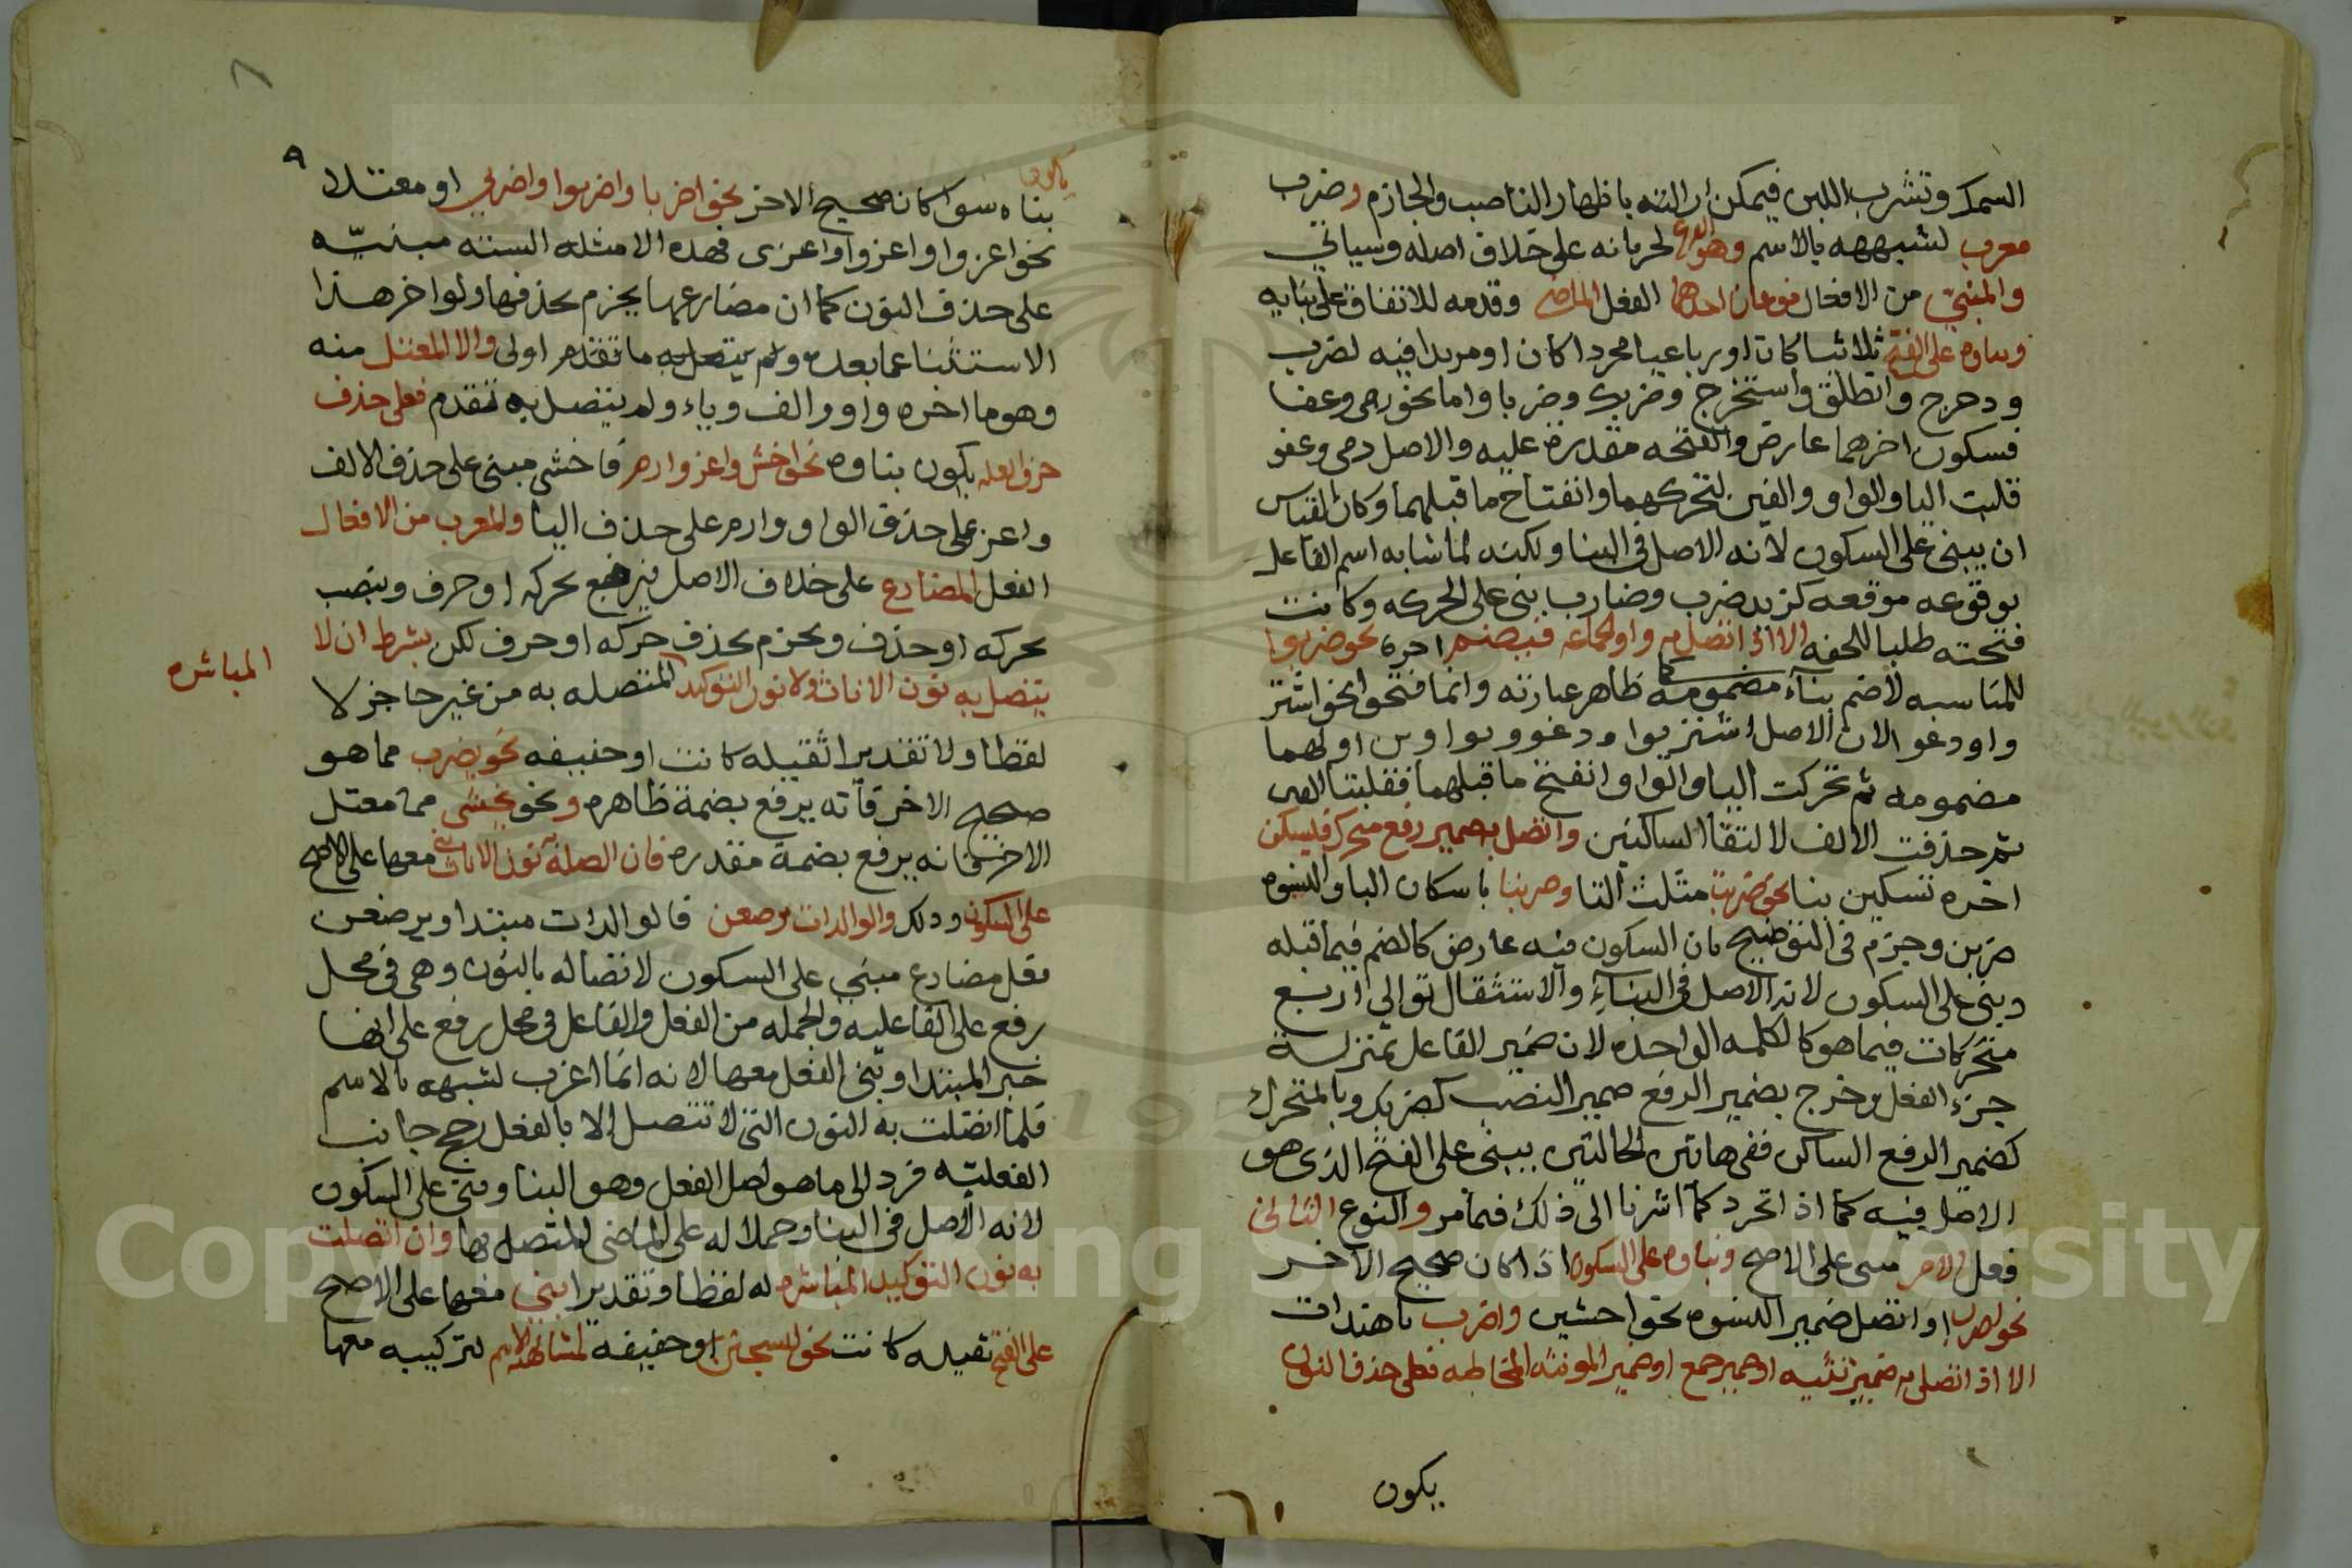 السمك وتشرب اللبن فيمكن ارالته باظهار الناصب والجازم وضرب
معرب لشبهه بالاسم وهو الفرع لجريانه على خلاف اصله وسياتي
والمبني من الافعال نوعان احدهما الفعل الماضي وقدمه للاتفاق على بنايه
وبناوه على الفتح ثلاثيا كان او رباعيا مجردا كان او مزيدا فيه لضرب
ودحرج وانطلق واستخرج وضربك وضربا واما نحو رمى وعفا
فسكون اخرهما عارض والفتحه مقدرة عليه والاصل رمي وعفو
قلبت اليا والواو والفين لتحركهما وانفتاح ما قبلهما وكان القياس
ان يبنى على السكون لانه الاصل في البنا ولكنه لما شابه اسم الفاعل
بوقوعه موقعه كزيد ضرب وضارب بنى على الحركه وكانت
فتحته طلبا للخفه الا اذا اتصل به واو الجماعه فيضم اخره نحو ضربوا
للمناسبه لا ضم بناء مضمومة كما ظاهر عبارته وانما فتحوا نحو اشتر
واودعو الان الاصل اشتريوا ودعووا بواوين اولهما
مضمومه ثم تحركت اليا والواو وانفتح ما قبلهما فقلبتا الفين
ثم حذفت الالف لالتقا الساكنين واتصل به ضمير رفع متحرك فيسكن
اخره تسكين بنا نحو ضربت مثلث التا وضربنا باسكان البا والنسوه
ضربن وجزم في التوضيح بان السكون فيه عارض كالضم فيما قبله
وبنى على السكون لانه الاصل في البناء والاستثقال توالي اربع
متحركات فيما هو كالكلمه الواحده لان ضمير الفاعل بمنزلة
جزء الفعل وخرج بضمير الرفع ضمير النصب كضربك وبالمتحرك
كضمير الرفع الساكن ففي هاتين الحالتين يبنى على الفتح الذي هو
الاصل فيه كما اذا تجرد كما اشرنا الى ذلك فيما مر والنوع الثاني
فعل الامر مبني على الاصح وبناوه على السكون اذا كان صحيح الاخر
نحو اضرب او اتصل ضمير النسوه نحو اخشين واضرب يا هندات
الا اذا اتصل به ضمير تثنيه او ضمير جمع او ضمير المونثه المخاطبه فعلى حذف النون
يكون
٨
٩
يكون
بناه سوا كان صحيح الاخر نحو اضربا واضربوا واضربي او معتلا
نحو اغزوا واغزوا واغزى فهذه الامثله السته مبنيّه
على حذف النون كما ان مضارعها يجزم بحذفها ولو اخر هذا
الاستثنا عما بعده ولم يتصل به ما تقدم اولى والا المعتل منه
وهو ما اخره واو والف وياء ولم يتصل به تقدم فعلى حذف
حرف العله يكون بناوه نحو اخش واغز وارم فاخشى مبنى على حذف الالف
واغز على حذف الواو وارم على حذف اليا والمعرب من الافعال
الفعل المضارع على خلاف الاصل فيرفع بحركه او حرف وينصب
بحركه او حذف ويجزم بحذف حركه او حرف لكن بشرط ان لا
يتصل به نون الاناث ولا نون التوكيد المتصله به من غير حاجز لا
المباشره
لفظا ولا تقديرا ثقيله كانت او خفيفه نحو يضرب مما هو
صحيح الاخر فانه يرفع بضمة ظاهره ونحو يخشى مما معتل
الاخر فانه يرفع بضمة مقدره فان اتصلت به نون الاناث بني معها على الاصح
على السكون وذلك والوالدات يرضعن فالوالدات مبتدا ويرضعن
فعل مضارع مبني على السكون لاتصاله بالنون وهي في محل
رفع على الفاعليه والجمله من الفعل والفاعل في محل رفع على انها
خبر المبتدا وبنى الفعل معها لانه انما اعرب لشبهه بالاسم
فلما اتصلت به النون التي لا تتصل الا بالفعل رجح جانب
الفعليّه فرد الى ما هو اصل الفعل وهو البنا وبنى على السكون
لانه الاصل في البنا وحملا له على الماضي المتصل بها وان اتصلت
به نون التوكيد المباشره له لفظا وتقديرا بني معها على الاصح
على الفتح ثقيله كانت نحو ليسجنن او خفيفه لمشابهته الاسم لتركيبه معها